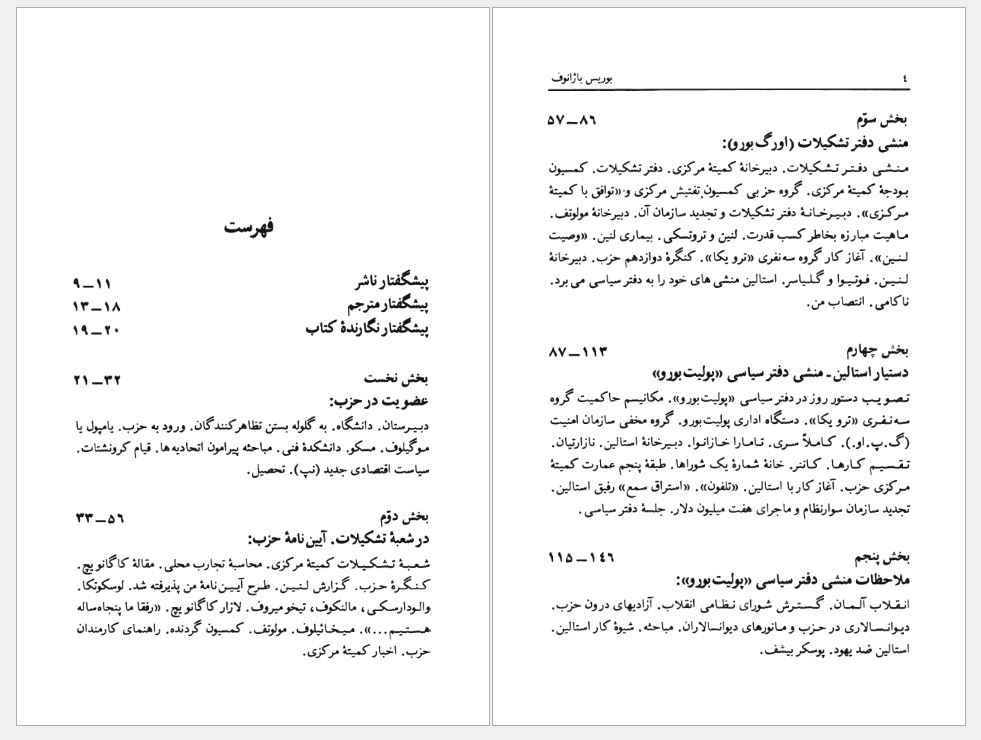 فهرست
پیشگفتار ناشر ۹ــ۱۱
پیشگفتار مترجم ۱۳ــ۱۸
پیشگفتار نگارندهٔ کتاب ۱۹ــ۲۰
بخش نخست ۲۱ــ۳۲
عضویت در حزب:
دبیرستان. دانشگاه. به گلوله بستن تظاهرکنندگان. ورود به حزب. یامپول یا
موگیلوف. مسکو. دانشکدهٔ فنی. مباحثه پیرامون اتحادیه‌ها. قیام کرونشتات.
سیاست اقتصادی جدید (نپ). تحصیل.
بخش دوّم ۳۳ــ۵۶
در شعبهٔ تشکیلات. آیین‌نامهٔ حزب:
شعبهٔ تشکیلات کمیتهٔ مرکزی. محاسبهٔ تجارب محلی. مقالهٔ کاگانویچ.
کنگرهٔ حزب. گزارش لنین. طرح آیین‌نامهٔ من پذیرفته شد. لوسکوتکا.
والودارسکی، مالنکوف، تیخومیروف. لازار کاگانویچ. «رفقا ما پنجاه‌ساله
هستیم...». میخائیلوف. مولوتف. کمسیون گردنده. راهنمای کارمندان
حزب. اخبار کمیتهٔ مرکزی.
۴ بوریس باژانوف
بخش سوّم ۵۷ــ۸۶
منشی دفتر تشکیلات (اورگ‌بورو):
منشی دفتر تشکیلات. دبیرخانهٔ کمیتهٔ مرکزی. دفتر تشکیلات. کمسیون
بودجهٔ کمیتهٔ مرکزی. گروه حزبی کمسیون تفتیش مرکزی و «توافق با کمیتهٔ
مرکزی». دبیرخانهٔ دفتر تشکیلات و تجدید سازمان آن. دبیرخانهٔ مولوتف.
ماهیت مبارزه بخاطر کسب قدرت. لنین و تروتسکی. بیماری لنین. «وصیت
لنین». آغاز کار گروه سه‌نفری «ترویکا». کنگرهٔ دوازدهم حزب. دبیرخانهٔ
لنین. فوتیوا و گلیاسر. استالین منشی‌های خود را به دفتر سیاسی می‌برد.
ناکامی. انتصاب من.
بخش چهارم ۸۷ــ۱۱۳
دستیار استالین ـ منشی دفتر سیاسی «پولیت‌بورو»
تصویب دستور روز در دفتر سیاسی «پولیت‌بورو». مکانیسم حاکمیت گروه
سه‌نفری «ترویکا». دستگاه اداری پولیت‌بورو. گروه مخفی سازمان امنیت
(گ.پ.او.). کاملاً سری. تامارا خازانوا. دبیرخانهٔ استالین. نازارتیان.
تقسیم کارها. کاننر. خانهٔ شمارهٔ یک شوراها. طبقهٔ پنجم عمارت کمیتهٔ
مرکزی حزب. آغاز کار با استالین. «تلفون». «استراق سمع» رفیق استالین.
تجدید سازمان سوارنظام و ماجرای هفت میلیون دلار. جلسهٔ دفتر سیاسی.
بخش پنجم ۱۱۵ــ۱۴۶
ملاحظات منشی دفتر سیاسی «پولیت‌بورو»:
انقلاب آلمان. گسترش شورای نظامی انقلاب. آزادیهای درون حزب.
دیوانسالاری در حزب و مانورهای دیوانسالاران. مباحثه. شیوهٔ کار استالین.
استالین ضد یهود. پوسکر بیشف.